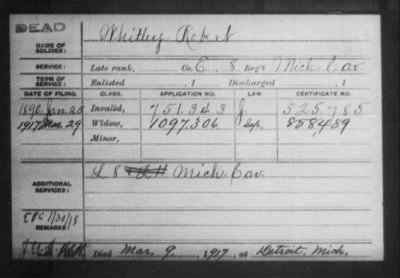 DEAD
NAME OF SOLDIER: Whitley Robert
SERVICE: Late rank, Co. E, 8 Reg't Mich. Cav.
TERM OF SERVICE: Enlisted , 1 Discharged , 1
DATE OF FILING. CLASS. APPLICATION NO. LAW. CERTIFICATE NO.
1890 Jan. 25 Invalid, 751.343 J 525.785
1917 Mar. 29 Widow, 1097.306 Sep. 858.489
Minor,
ADDITIONAL SERVICES: L 8 Mich. Cav.
1/30/18
REMARKS: Died Mar. 9, 1917, at Detroit, Mich.